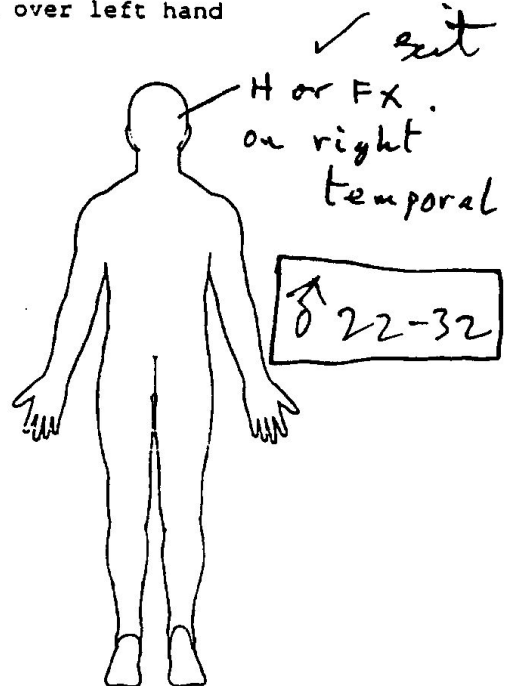 over left hand
✓ exit
H or FX.
on right
temporal
♂ 22-32